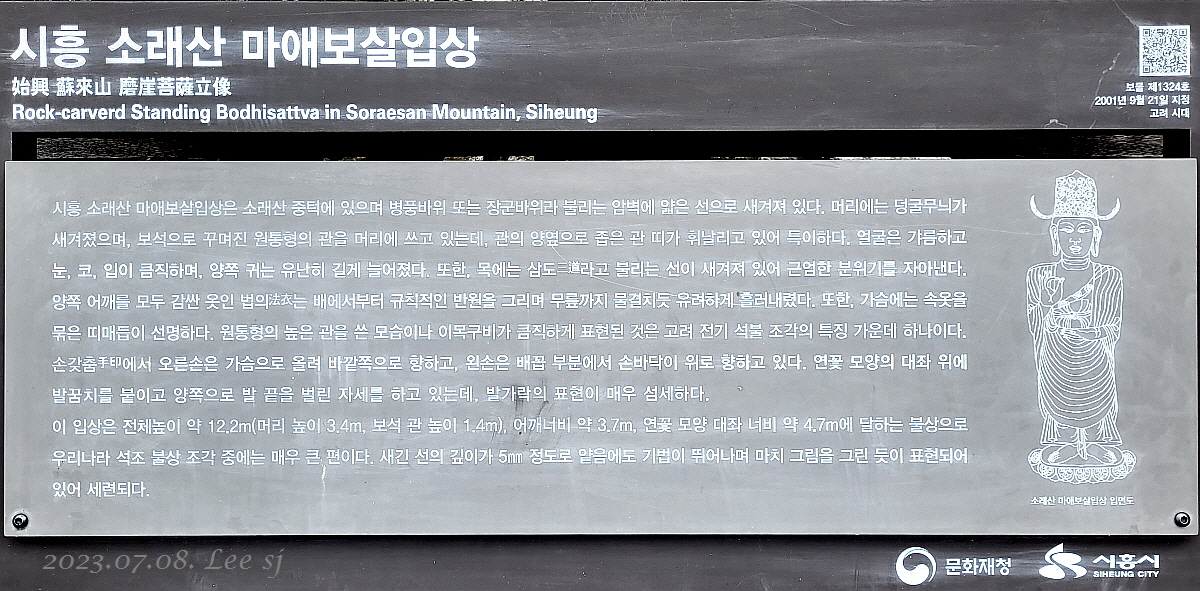 시흥 소래산 마애보살입상
始興 蘇來山 磨崖菩薩立像
Rock-carverd Standing Bodhisattva in Soraesan Mountain, Siheung
보물 제1324호
2001년 9월 21일 지정
고려 시대
시흥 소래산 마애보살입상은 소래산 중턱에 있으며 병풍바위 또는 장군바위라 불리는 암벽에 얇은 선으로 새겨져 있다. 머리에는 덩굴무늬가
새겨졌으며, 보석으로 꾸며진 원통형의 관을 머리에 쓰고 있는데, 관의 양옆으로 좁은 관 띠가 휘날리고 있어 특이하다. 얼굴은 갸름하고
눈, 코, 입이 큼직하며, 양쪽 귀는 유난히 길게 늘어졌다. 또한, 목에는 삼도三道라고 불리는 선이 새겨져 있어 근엄한 분위기를 자아낸다.
양쪽 어깨를 모두 감싼 옷인 법의法衣는 배에서부터 규칙적인 반원을 그리며 무릎까지 물결치듯 유려하게 흘러내렸다. 또한, 가슴에는 속옷을
묶은 띠매듭이 선명하다. 원통형의 높은 관을 쓴 모습이나 이목구비가 큼직하게 표현된 것은 고려 전기 석불 조각의 특징 가운데 하나이다.
손갖춤手印에서 오른손은 가슴으로 올려 바깥쪽으로 향하고, 왼손은 배꼽 부분에서 손바닥이 위로 향하고 있다. 연꽃 모양의 대좌 위에
발꿈치를 붙이고 양쪽으로 발 끝을 벌린 자세를 하고 있는데, 발가락의 표현이 매우 섬세하다.
이 입상은 전체높이 약 12.2m(머리 높이 3.4m, 보석 관 높이 1.4m), 어깨너비 약 3.7m, 연꽃 모양 대좌 너비 약 4.7m에 달하는 불상으로
우리나라 석조 불상 조각 중에는 매우 큰 편이다. 새긴 선의 깊이가 5㎜ 정도로 얕음에도 기법이 뛰어나며 마치 그림을 그린 듯이 표현되어
있어 세련되다.
소래산 마애보살입상 입면도
2023.07.08. Lee sj
문화재청
시흥시
SIHEUNG CITY